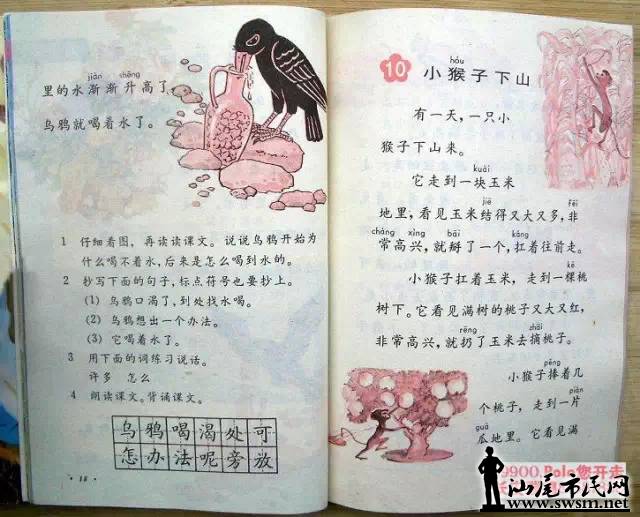 jiàn shēng
里的水渐渐升高了，
乌鸦就喝着水了。
1 仔细看图，再读读课文。说说乌鸦开始为
什么喝不着水，后来是怎么喝到水的。
2 抄写下面的句子，标点符号也要抄上。
(1) 乌鸦口渴了，到处找水喝。
(2) 乌鸦想出一个办法。
(3) 它喝着水了。
3 用下面的词练习说话。
许多 怎么
4 朗读课文。背诵课文。
乌鸦喝渴处可
怎办法呢旁放
·18·
hóu
10 小猴子下山
有一天，一只小
猴子下山来。
kuài
它走到一块玉米
jiē fēi
地里，看见玉米结得又大又多，非
cháng xìng bāi káng
常高兴，就掰了一个，扛着往前走。
小猴子扛着玉米，走到一棵桃
树下。它看见满树的桃子又大又红，
rēng zhāi
非常高兴，就扔了玉米去摘桃子。
pěng
小猴子捧着几
piàn
个桃子，走到一片
guā
瓜地里。它看见满
9900 Polo您开走
汕尾市民网
www.swsm.net